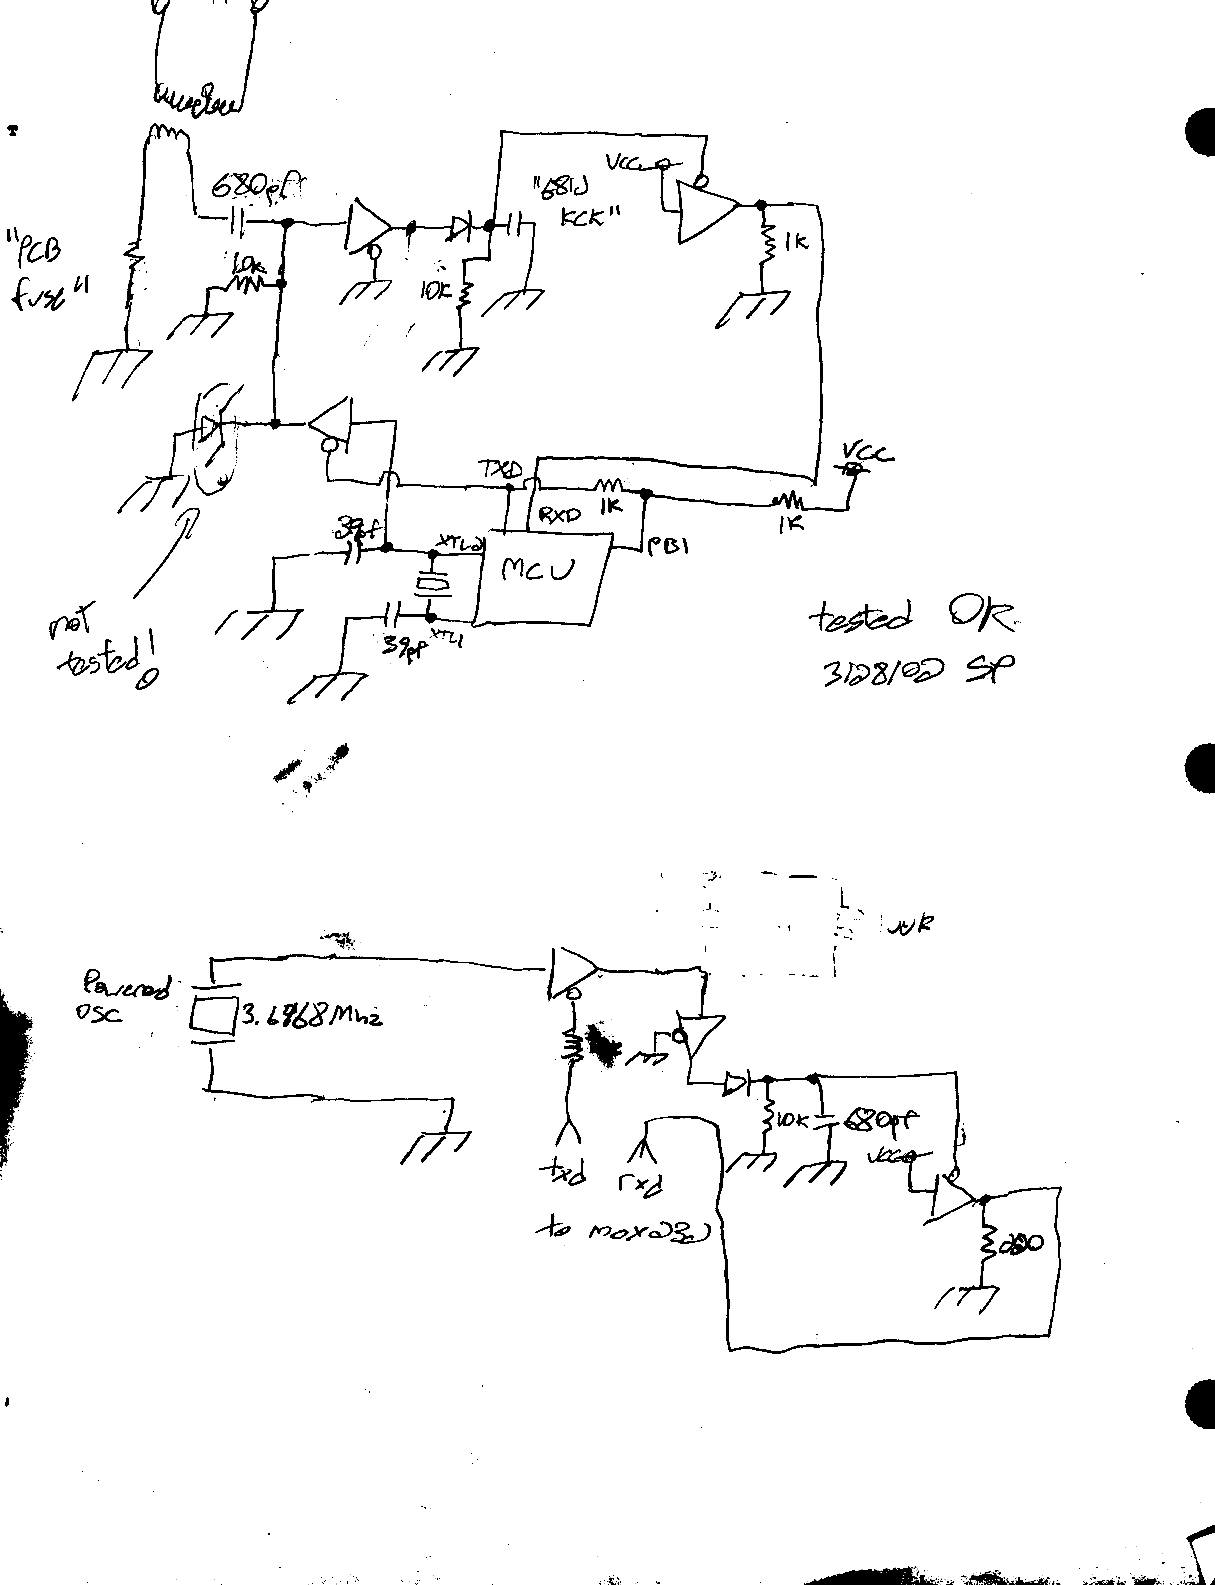 680pf
"PCB
fuse"
10K
10K
"681J
KCK"
VCC
1K
VCC
TXD
RXD
1K
1K
PB1
39pf
XTL2
MCU
39pf
XTL1
not
tested!
tested OK
3/28/02 SP
Powered
OSC
3.6868Mhz
10K
680pf
VCC
txd
rxd
to max232
220